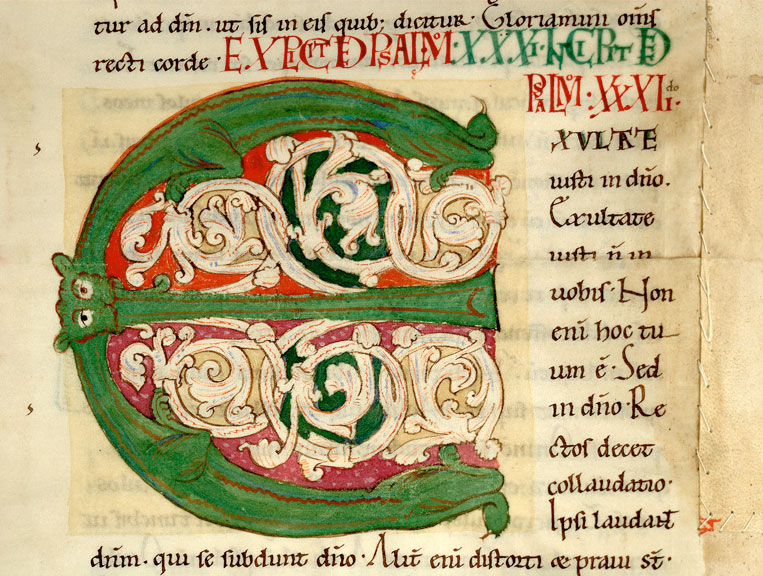 tur ad dñm. ut sis in eis quib; dicitur. Gloriamini om̅s
recti corde. EXPLICIT DE PSALMO. XXXI. INCIPIT DE
PSALMO. XXXII.do
EXULTATE
iusti in dño.
Exultate
iusti ñ in
uobis. Non
enĩ hoc tu
um ẽ. Sed
in dño. Re
ctos decet
collaudatio.
Ipsi laudant
dñm. qui se subdunt dño. Alit̃ enĩ distorti & praui st̅.